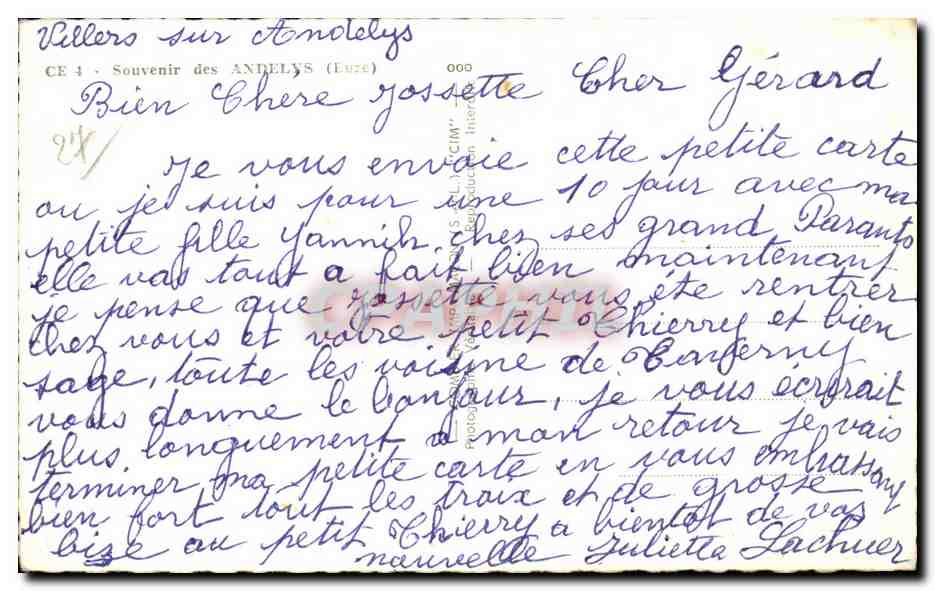 Villers sur Andelys
CE 4 - Souvenir des ANDELYS (Eure)
Bien Chère Jossette Cher Gérard
27
Je vous envoie cette petite carte
ou je suis pour une 10 jour avec ma
petite fille Yannik chez ses grand Parants
elle vas tout a fait bien maintenant
je pense que Jossette vous ete rentrer
chez vous et votre petit Thierry et bien
sage, toute les voisine de Taverny
vous donne le bonjour, je vous écrirait
plus longuement a mon retour je vais
terminer ma petite carte en vous embrassant
bien fort tout les troix et de grosse
bize au petit Thierry a bientot de vos
nouvelle Julietta Lachuer
"CIM"
Reproduction